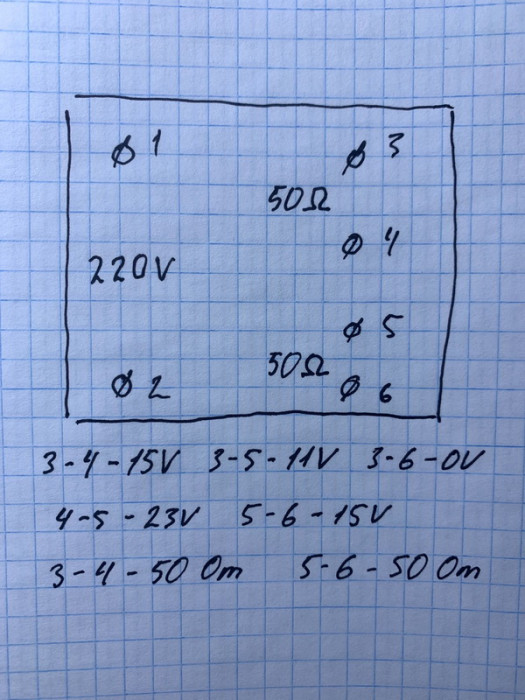 ϕ 1 ϕ 3
50Ω
ϕ 4
220V
ϕ 5
50Ω
ϕ 2 ϕ 6
3-4-15V 3-5-11V 3-6-0V
4-5-23V 5-6-15V
3-4-50 Om 5-6-50 Om